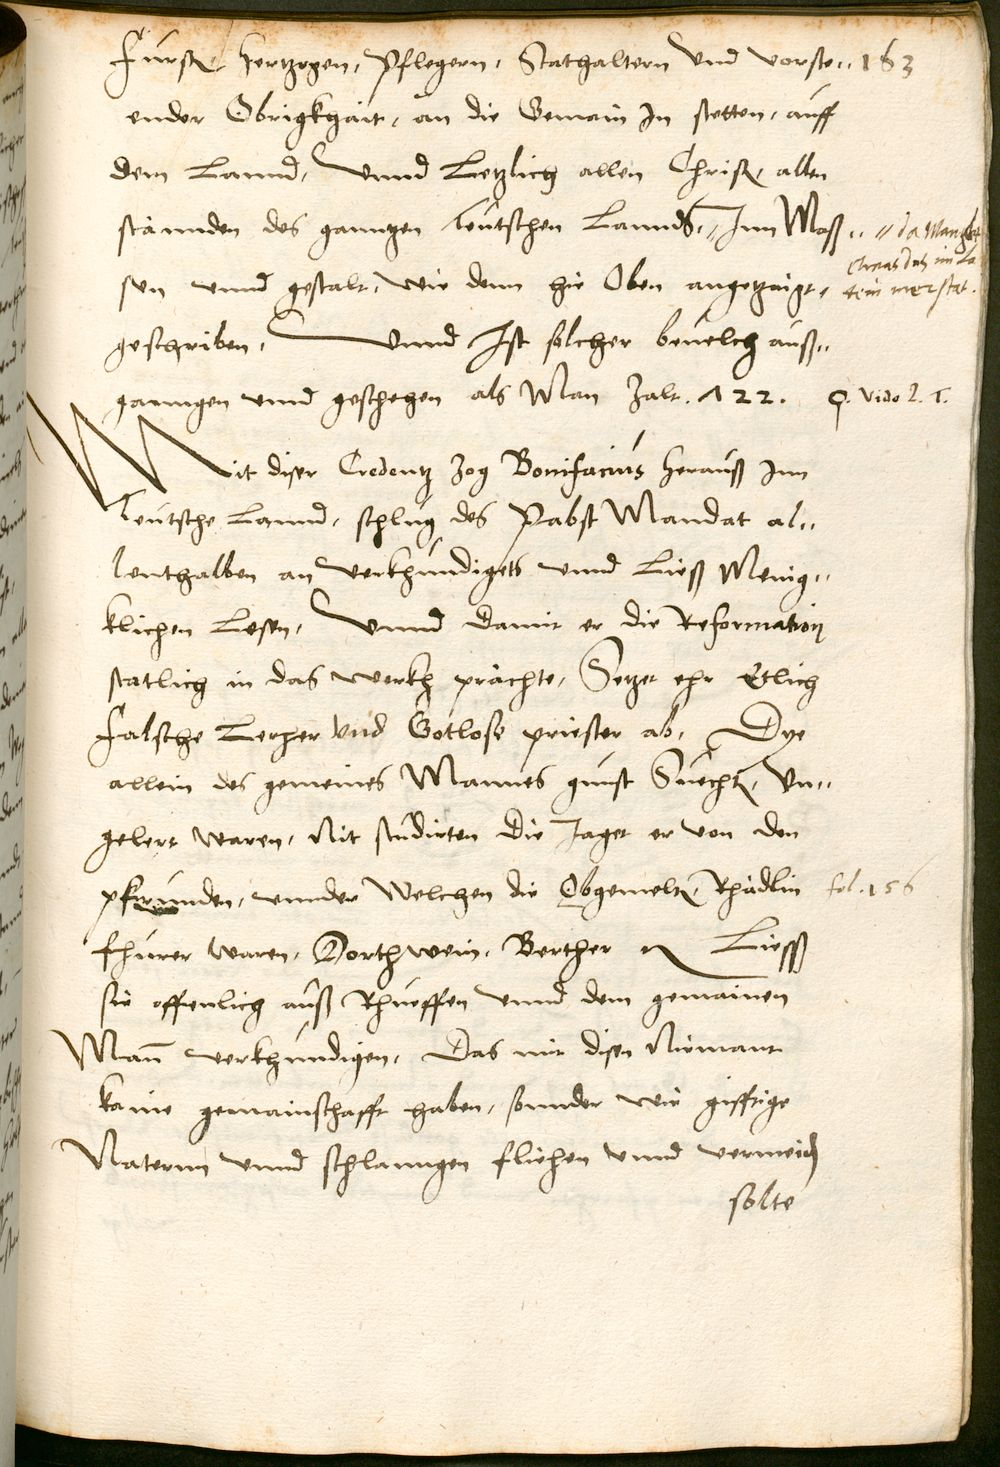 Fürstn, Hertzogen, Pflegern, Stathaltern Vnd vorste,, 163
ender Obrigkhait, an die Gemain In stetten, auff
dem Lannd, Vnnd Letzlich allen Christn, allen
stännden des ganntzen Teutschen Lannds, // Inn Maß,, // da Manglet
sen vnnd gestalt, wie denn hie Oben angetzaigt, etwas das im La
tein
geschriben, Vnnd Ist solcher beuelch auß,,
ganngen vnnd geschehen als Man Zalt. 122.
Mit diser Credentz Zog Bonifacius herauß Inn
Teutsche Lannd, schlug des Pabst Mandat al,,
lenthalben an verkhündigets vnnd Ließ Menig,,
klichen Lesen, Vnnd damit er die Reformation
statlich in das werkh prächte, Setzet ehr Etlich
Falsche Lerher Vnd Gotlose priester ab, Dye
allein des gemeines Mannes gunst Suechtn, Vn,,
gelert waren, Nit studirten die Jaget er von den
pfrunden, vnnder Welchen die Obgemeltn, Rhädlin fol. 156
fhürer waren, Dorthwein, Berther Liesß
sie offenlich auß Rhueffen vnnd dem gemainen
Man verkhündigen, Das mit disen Niemant
kaine gemainschafft haben, sonnder wie gifftige
Naternn vnnd schlanngen fliehen vnnd vermeiden
solte